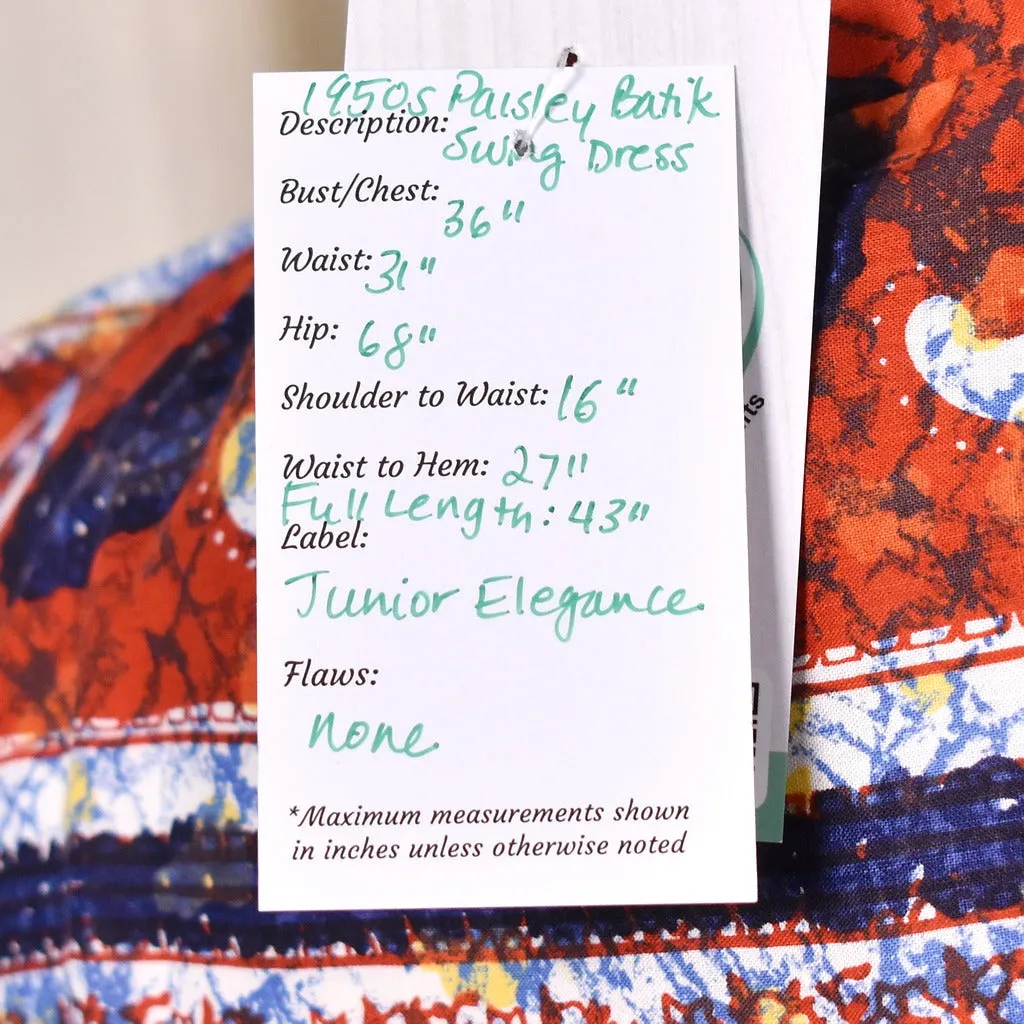 1950s Paisley Batik
Description:
Swing Dress
Bust/Chest:
36"
Waist: 31"
Hip: 68"
Shoulder to Waist: 16"
Waist to Hem: 27"
Full Length: 43"
Label:
Junior Elegance
Flaws:
none
*Maximum measurements shown
in inches unless otherwise noted